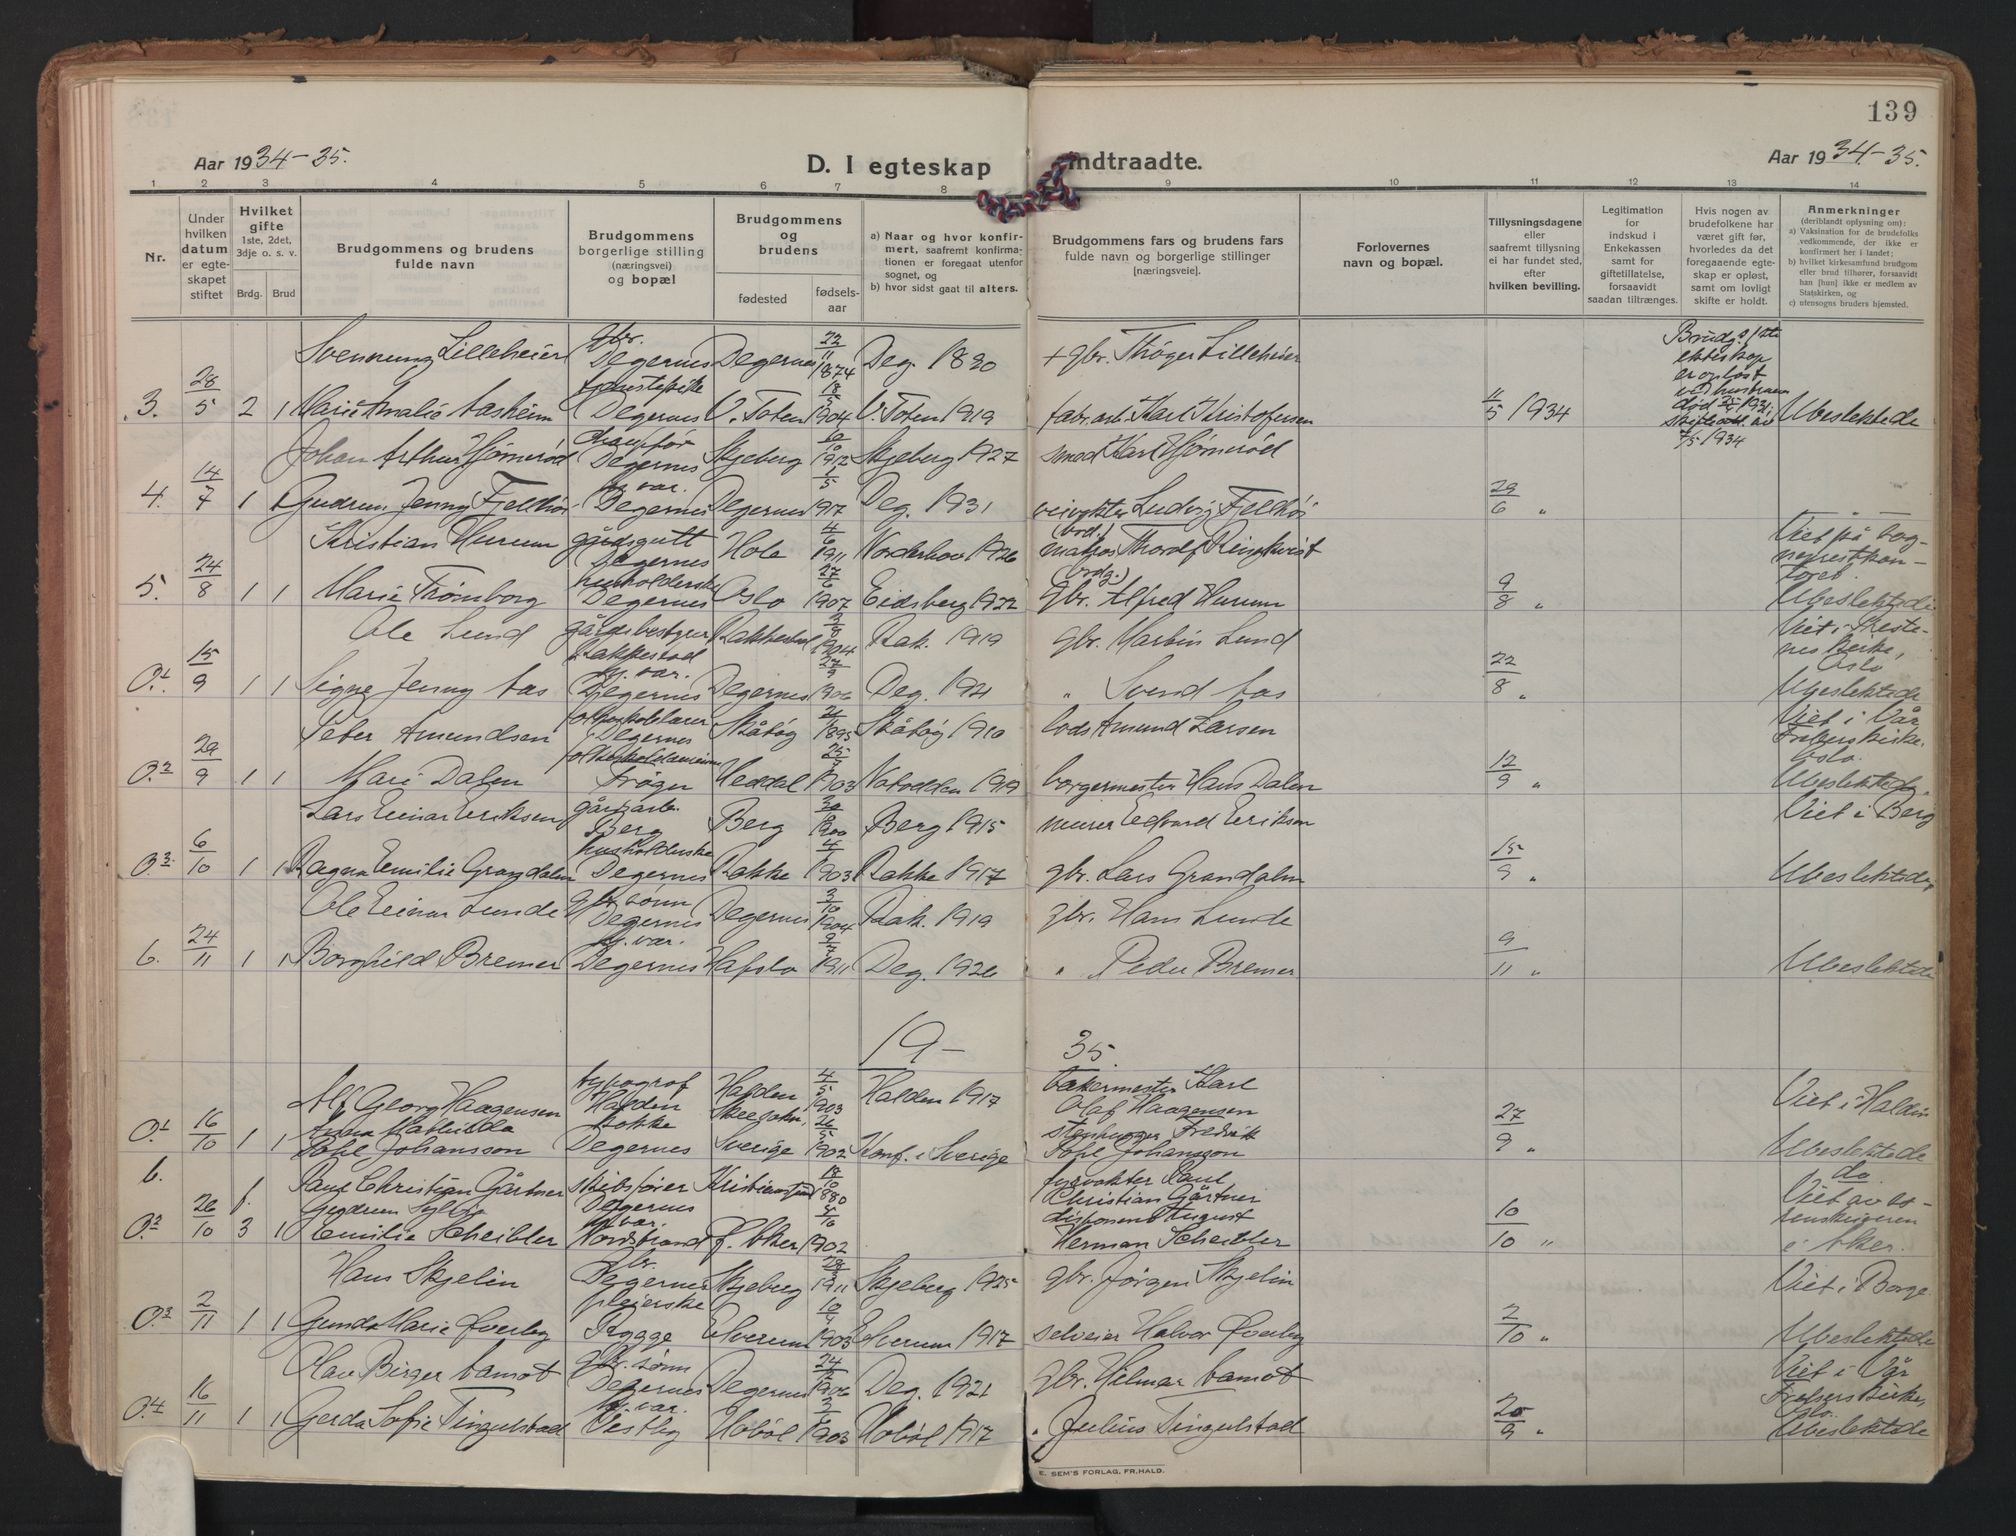 139
Aar 1934-35.
D. I egteskap indtraadte.
Aar 1934-35.
1 2 3 4 5 6 7 8 9 10 11 12 13 14
Nr.
Under hvilken datum er egteskapet stiftet
Hvilket gifte 1ste, 2det, 3dje o. s. v.
Brdg. Brud
Brudgommens og brudens fulde navn
Brudgommens borgerlige stilling (næringsvei) og bopæl
Brudgommens og brudens
fødested
fødsels-aar
a) Naar og hvor konfirmert, saafremt konfirmationen er foregaat utenfor sognet, og
b) hvor sidst gaat til alters.
Brudgommens fars og brudens fars fulde navn og borgerlige stillinger [næringsveie].
Forlovernes navn og bopæl.
Tillysningsdagene eller saafremt tillysning ei har fundet sted, efter hvilken bevilling.
Legitimation for indskud i Enkekassen samt for giftetillatelse, forsaavidt saadan tiltrænges.
Hvis nogen av brudefolkene har været gift før, hvorledes da det foregaaende egteskap er opløst, samt om lovligt skifte er holdt.
Anmerkninger (deriblandt oplysning om):
a) Vaksination for de brudefolks vedkommende, der ikke er konfirmert her i landet;
b) hvilket kirkesamfund brudgom eller brud tilhører, forsaavidt han [hun] ikke er medlem av Statskirken, og
c) utensogns bruders hjemsted.
Svennung Lilleheier gbr. Degernes Degernes 22/11 1874 Deg. 1890 + gbr. Thøger Lilleheier
3. 28/5 2 1 Marie Amalie Aasheim Degernes V. Toten 1904 V. Toten 1919 fabr.arb. Karl Kristofersen 11/5 1934 Ubeslektede
Brudg.s 1ste ekteskap er opløst ved hustruens død 1931, skifteatt. av 1934
Johan Arthur Hjørnerød chauffør Degernes Skjeberg 1912 Skjeberg 1927 smed Karl Hjørnerød
4. 14/7 1 1 Gudrun Jenny Fjelldhøi hj. var. Degernes Degernes 1917 Deg. 1931 veivokter Ludvig Fjellhøi 29/6 "
Kristian Hurum gårdsgutt Degernes Hole 4/6 1911 Norderhov 1926 (brd.) matros Thorolf Ringkvist Viet på sogneprestkontoret.
5. 24/8 1 1 Marie Trømborg husholderske Degernes Oslo 27/6 1907 Eidsberg 1922 (brdg.) gbr. Alfred Hurum 9/8 " Ubeslektede
Ole Lund gårdsbestyrer Rakkestad Rakkestad 1904 Rak. 1919 gbr. Martin Lund Viet i
O.1 15/9 1 1 Signe Jenny Aas hj. var. Degernes Degernes 27/9 1906 Deg. 1921 " Svend Aas 22/8 " Oslo Ubeslektede
Peter Amundsen folkeskolelærer Degernes Skåtøy 1895 Skåtøy 1910 lods Amund Larsen Viet i Vår Frelsers kirke, Oslo.
O.2 29/9 1 1 Mari Dalen folkeskolelærerinne Frogn Heddal 1903 Notodden 1919 borgermester Hans Dalen 12/9 " Ubeslektede.
Lars Einar Eriksen gårdsarb. Berg Berg 1900 Berg 1915 murer Edvard Eriksen Viet i Berg
O.3 6/10 1 1 Ragna Emilie Grandalen husholderske Degernes Rakke 1903 Rakke 1917 gbr. Lars Grandalen 15/9 " Ubeslektede,
Ole Einar Lunde gbr. sønn Degernes Degernes 2/10 1904 Rak. 1919 gbr. Hans Lunde
6. 24/11 1 1 Borghild Bremer hj. var. Degernes Hafslo 1911 Deg. 1926 " Peder Bremer 9/11 " Ubeslektede
19-35.
Alf Georg Haagensen typograf Halden Halden 4/5 1903 Halden 1917 bakermester Karl Olaf Haagensen Viet i Halden
O.1 16/10 1 1 Anna Mathilda Pohl Johansson kokke Degernes Skee sokn, Sverige 1902 Konf. i Sverige stenhugger Fredrik Pohl Johansson 27/9 " Ubeslektede
6. Paul Christian Gärtner skibsfører Degernes Kristiansund 1880 fyrvokter Paul Christian Gärtner do. Viet av
O.2 26/10 f. 3 1 Gudrun Sylvia Emilie Scheibler hj. var. Nordstrand f. Aker 1902 disponent August Herman Scheibler 10/10 " i Aker.
Hans Skjelin gbr. Degernes Skjeberg 1911 Skjeberg 1925 gbr. Jørgen Skjelin Viet i Borge
O.3 2/11 1 1 Gunda Marie Øverby pleierske Rygge Elverum 1903 Elverum 1917 selveier Halvor Øverby 2/10 " Ubeslektede
Olav Birger Aamot gbr. sønn Degernes Degernes 1906 Deg. 1921 gbr. Hilmar Aamot Viet i Vår Frelsers kirke, Oslo.
O.4 16/11 1 1 Gerda Sofie Tingulstad hj. var. Vestby Hobøl 1903 Hobøl 1917 " Julius Tingulstad 20/9 " Ubeslektede
E. SEM'S FORLAG, FR.HALD.